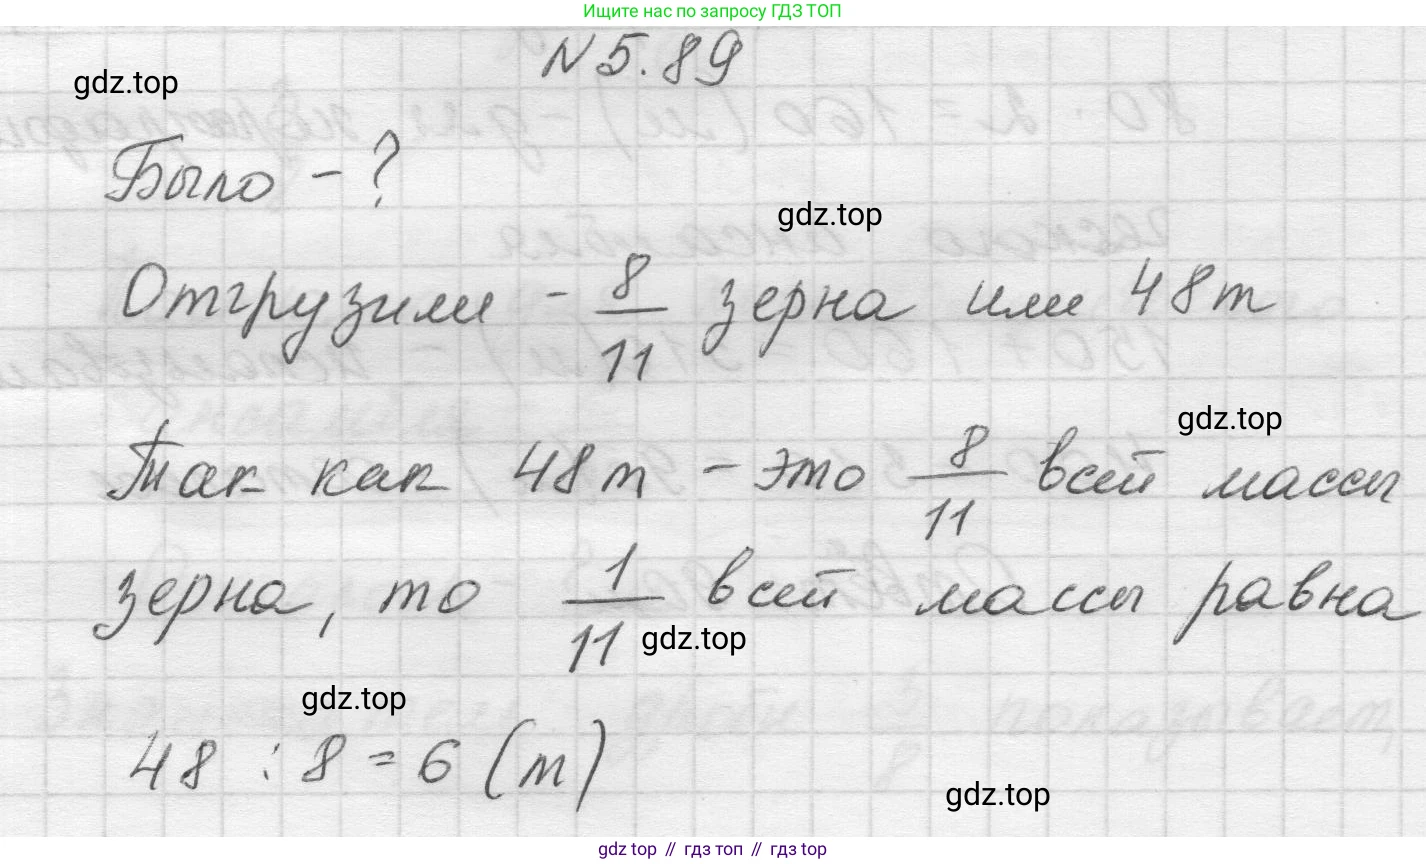 Ищите нас по запросу ГДЗ ТОП
№ 5.89
gdz.top
Было - ?
gdz.top
Отгрузили - 8/11 зерна или 48 т
gdz.top
Так как 48 т - это 8/11 всей массы
зерна, то 1/11 всей массы равна
gdz.top
gdz.top
48 : 8 = 6 (т)
gdz.top
gdz top // гдз топ // гдз top